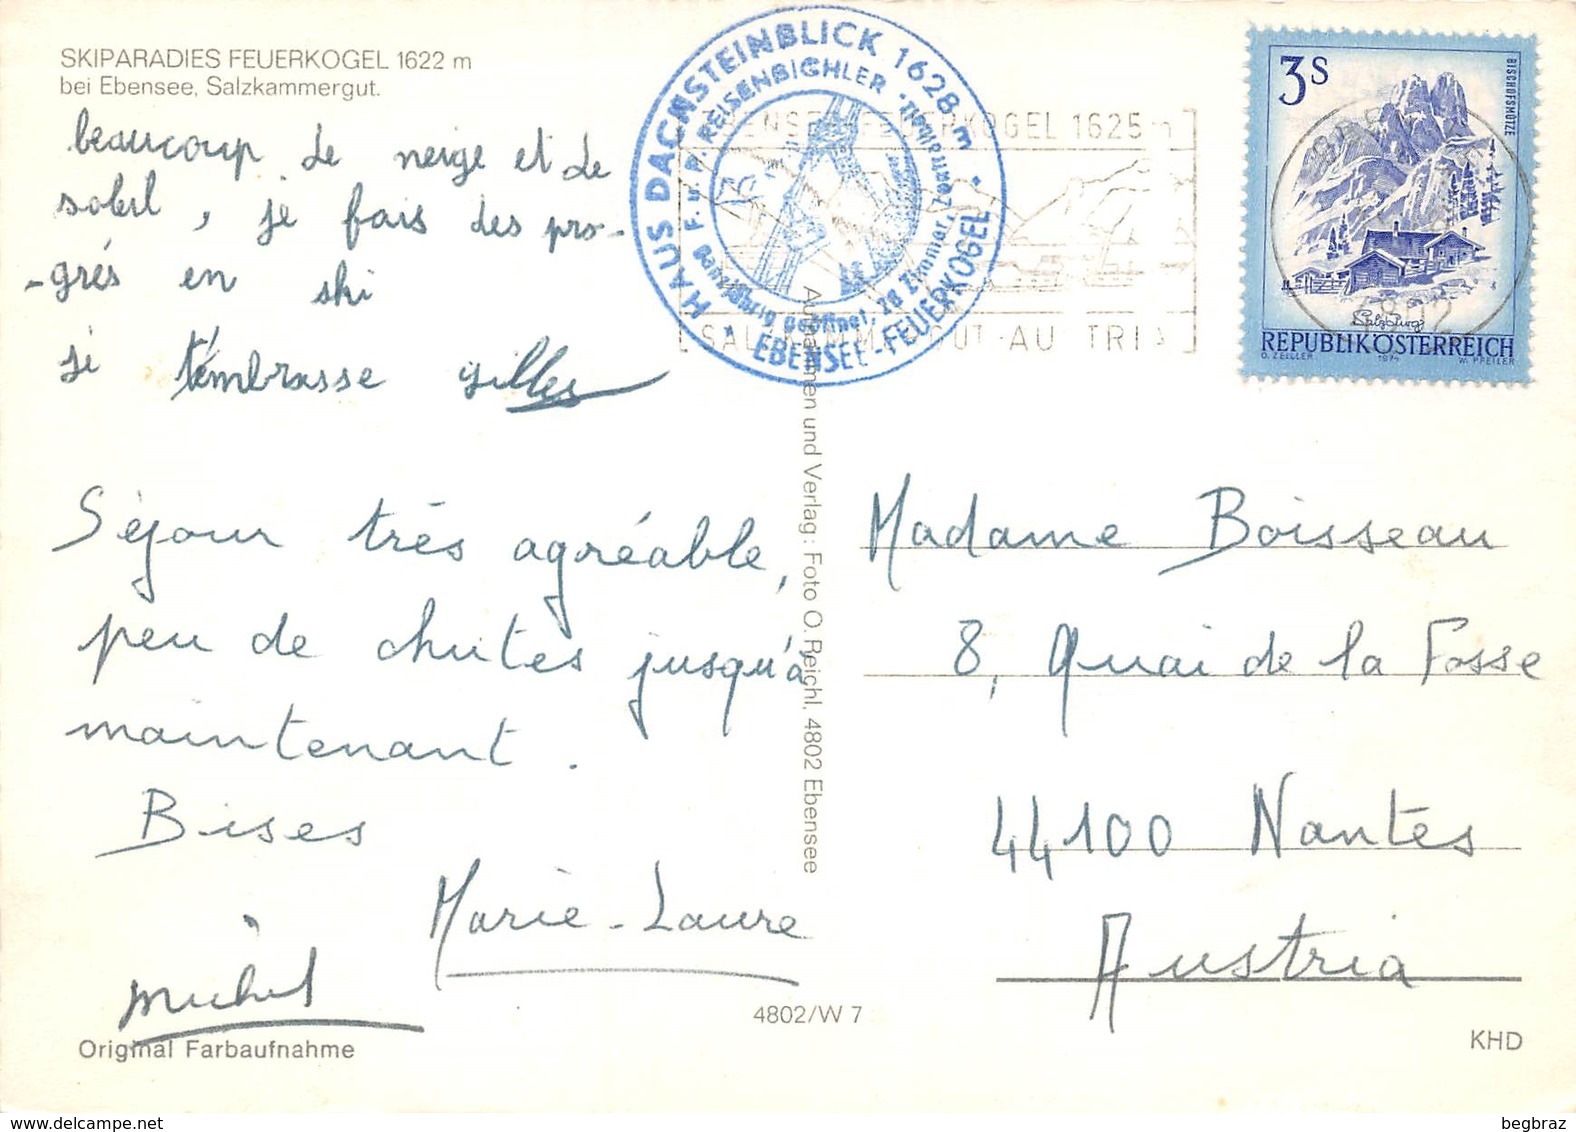 SKIPARADIES FEUERKOGEL 1622 m
bei Ebensee, Salzkammergut.
beaucoup de neige et de
soleil, je fais des pro-
-grés en ski
je t'embrasse gilles
Séjour très agréable,
peu de chutes jusqu'à
maintenant.
Bises
Marie-Laure
Michel
Original Farbaufnahme
HAUS DACHSTEINBLICK 1628 m
F. u. P. REISENBICHLER
ganzjährig geöffnet, 20 Zimmer,
EBENSEE-FEUERKOGEL
EBENSEE FEUERKOGEL 1625 m
SALZKAMMERGUT-AUSTRIA
3 S
BISCHOFSMÜTZE
4802
Salzburg
REPUBLIK ÖSTERREICH
O. ZEILLER 1974 W. PFEILER
Aufnahmen und Verlag: Foto O. Reichl, 4802 Ebensee
Madame Boisseau
8, Quai de la Fosse
44100 Nantes
Austria
4802/W 7
KHD
begbraz